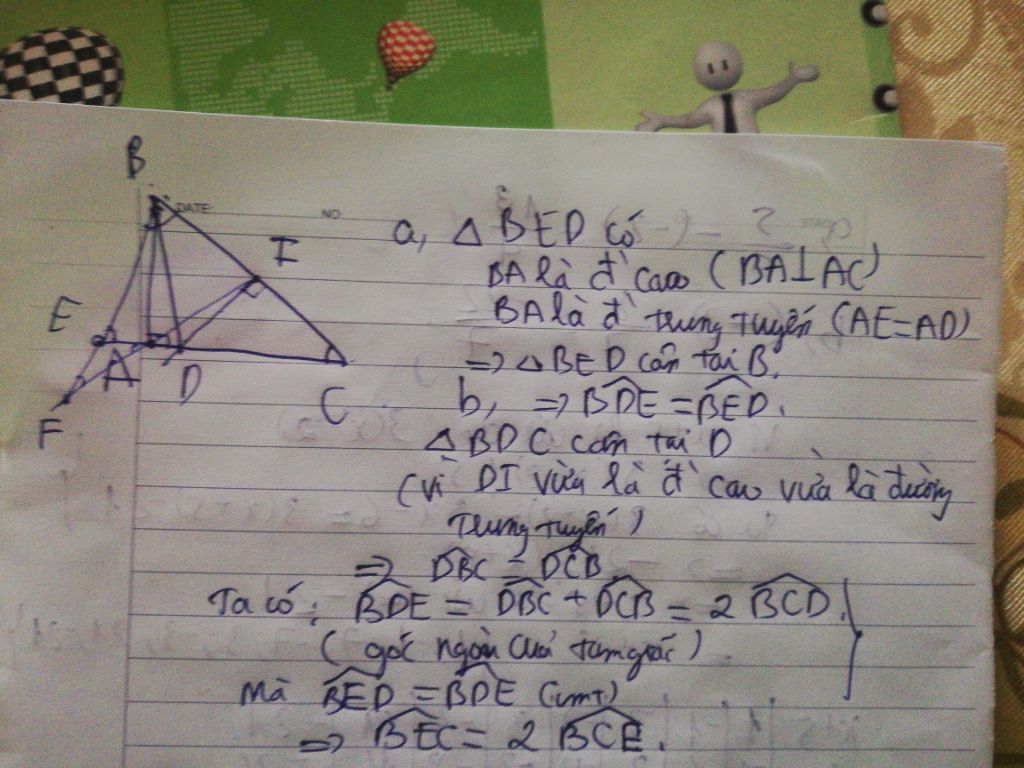 B
DATE:
NO
I
E
A
D
C
F
a, △ BED có
BA là đ' cao (BA⊥AC)
BA là đ' trung tuyến (AE=AD)
=> △BED cân tại B,
b, => BDE = BED.
△ BDC cân tại D
(vì DI vừa là đ' cao vừa là đường
trung tuyến)
=> DBC = DCB
Ta có: BDE = DBC + DCB = 2 BCD.
(góc ngoài của tam giác)
Mà BED = BDE (cmt)
=> BEC = 2 BCE.